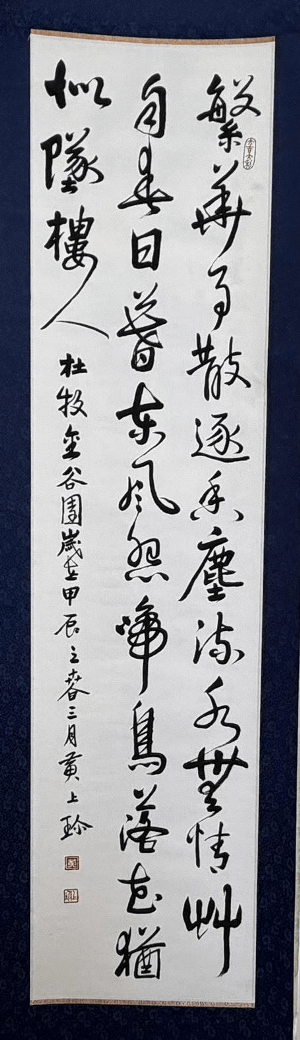 繁華事散逐香塵流水無情艸
自春日暮東風怨啼鳥落花猶
似墜樓人
杜牧金谷園歲在甲辰之春三月黃上玲